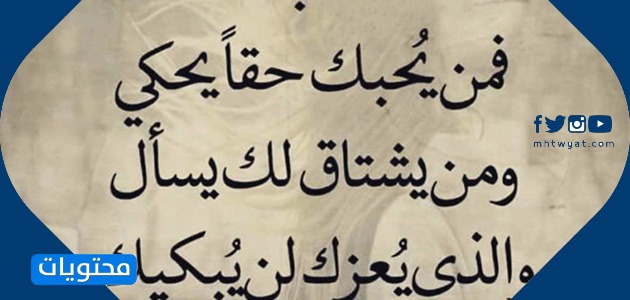 فمن يُحبك حقاً يحكي
ومن يشتاق لك يسأل
والذي يُعزك لن يُبكيك
mhtwyat.com
محتويات